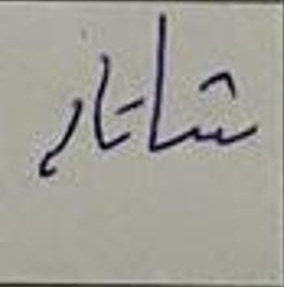 شاتار